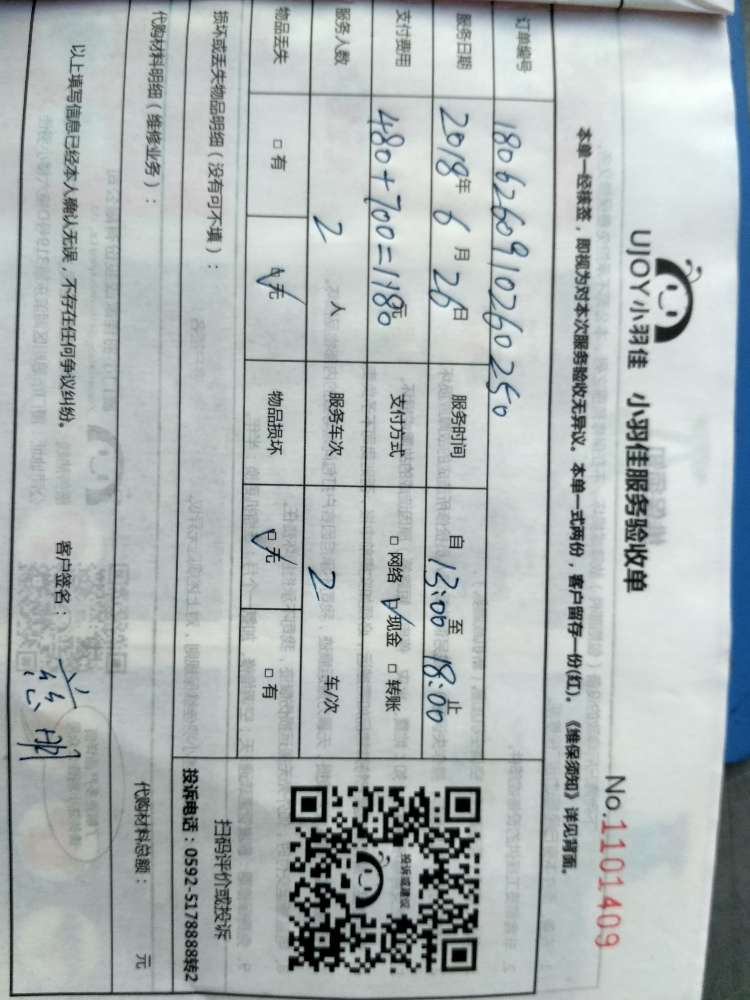 UJOY小羽佳 小羽佳服务验收单
No.1101409
本单一经核签，即视为对本次服务验收无异议。本单一式两份，客户留存一份(红)。《维保须知》详见背面。
订单编号 1806260910260250
服务日期 2018年6月26日 服务时间 自13:00至18:00止
支付费用 480+700=1180元 支付方式 □网络 ☑现金 □转账
服务人数 2人 服务车次 2 车/次
物品丢失 □有 ☑无 物品损坏 ☑无 □有
投诉或建议
扫码评价或投诉
投诉电话：0592-5178888转2
损坏或丢失物品明细（没有可不填）：
代购材料明细（维修业务）： 代购材料总额： 元
以上填写信息已经本人确认无误，不存在任何争议纠纷。 客户签名：